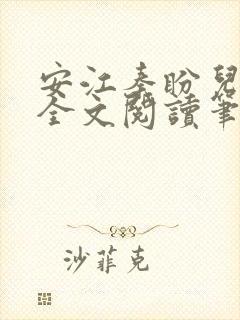 安江秦盼兒
全文閱讀筆
沙菲克